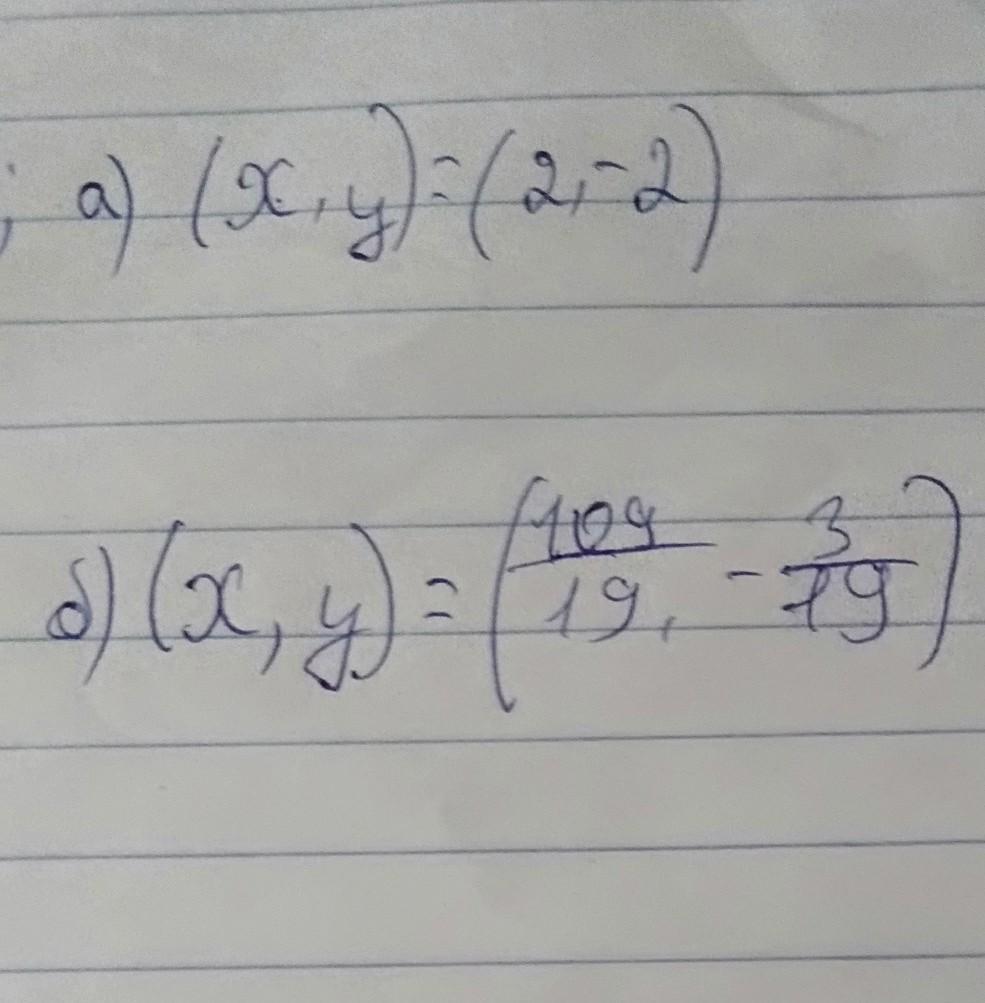 ; а) (x, y) = (2, -2)
б) (x, y) = (109/19, -3/79)